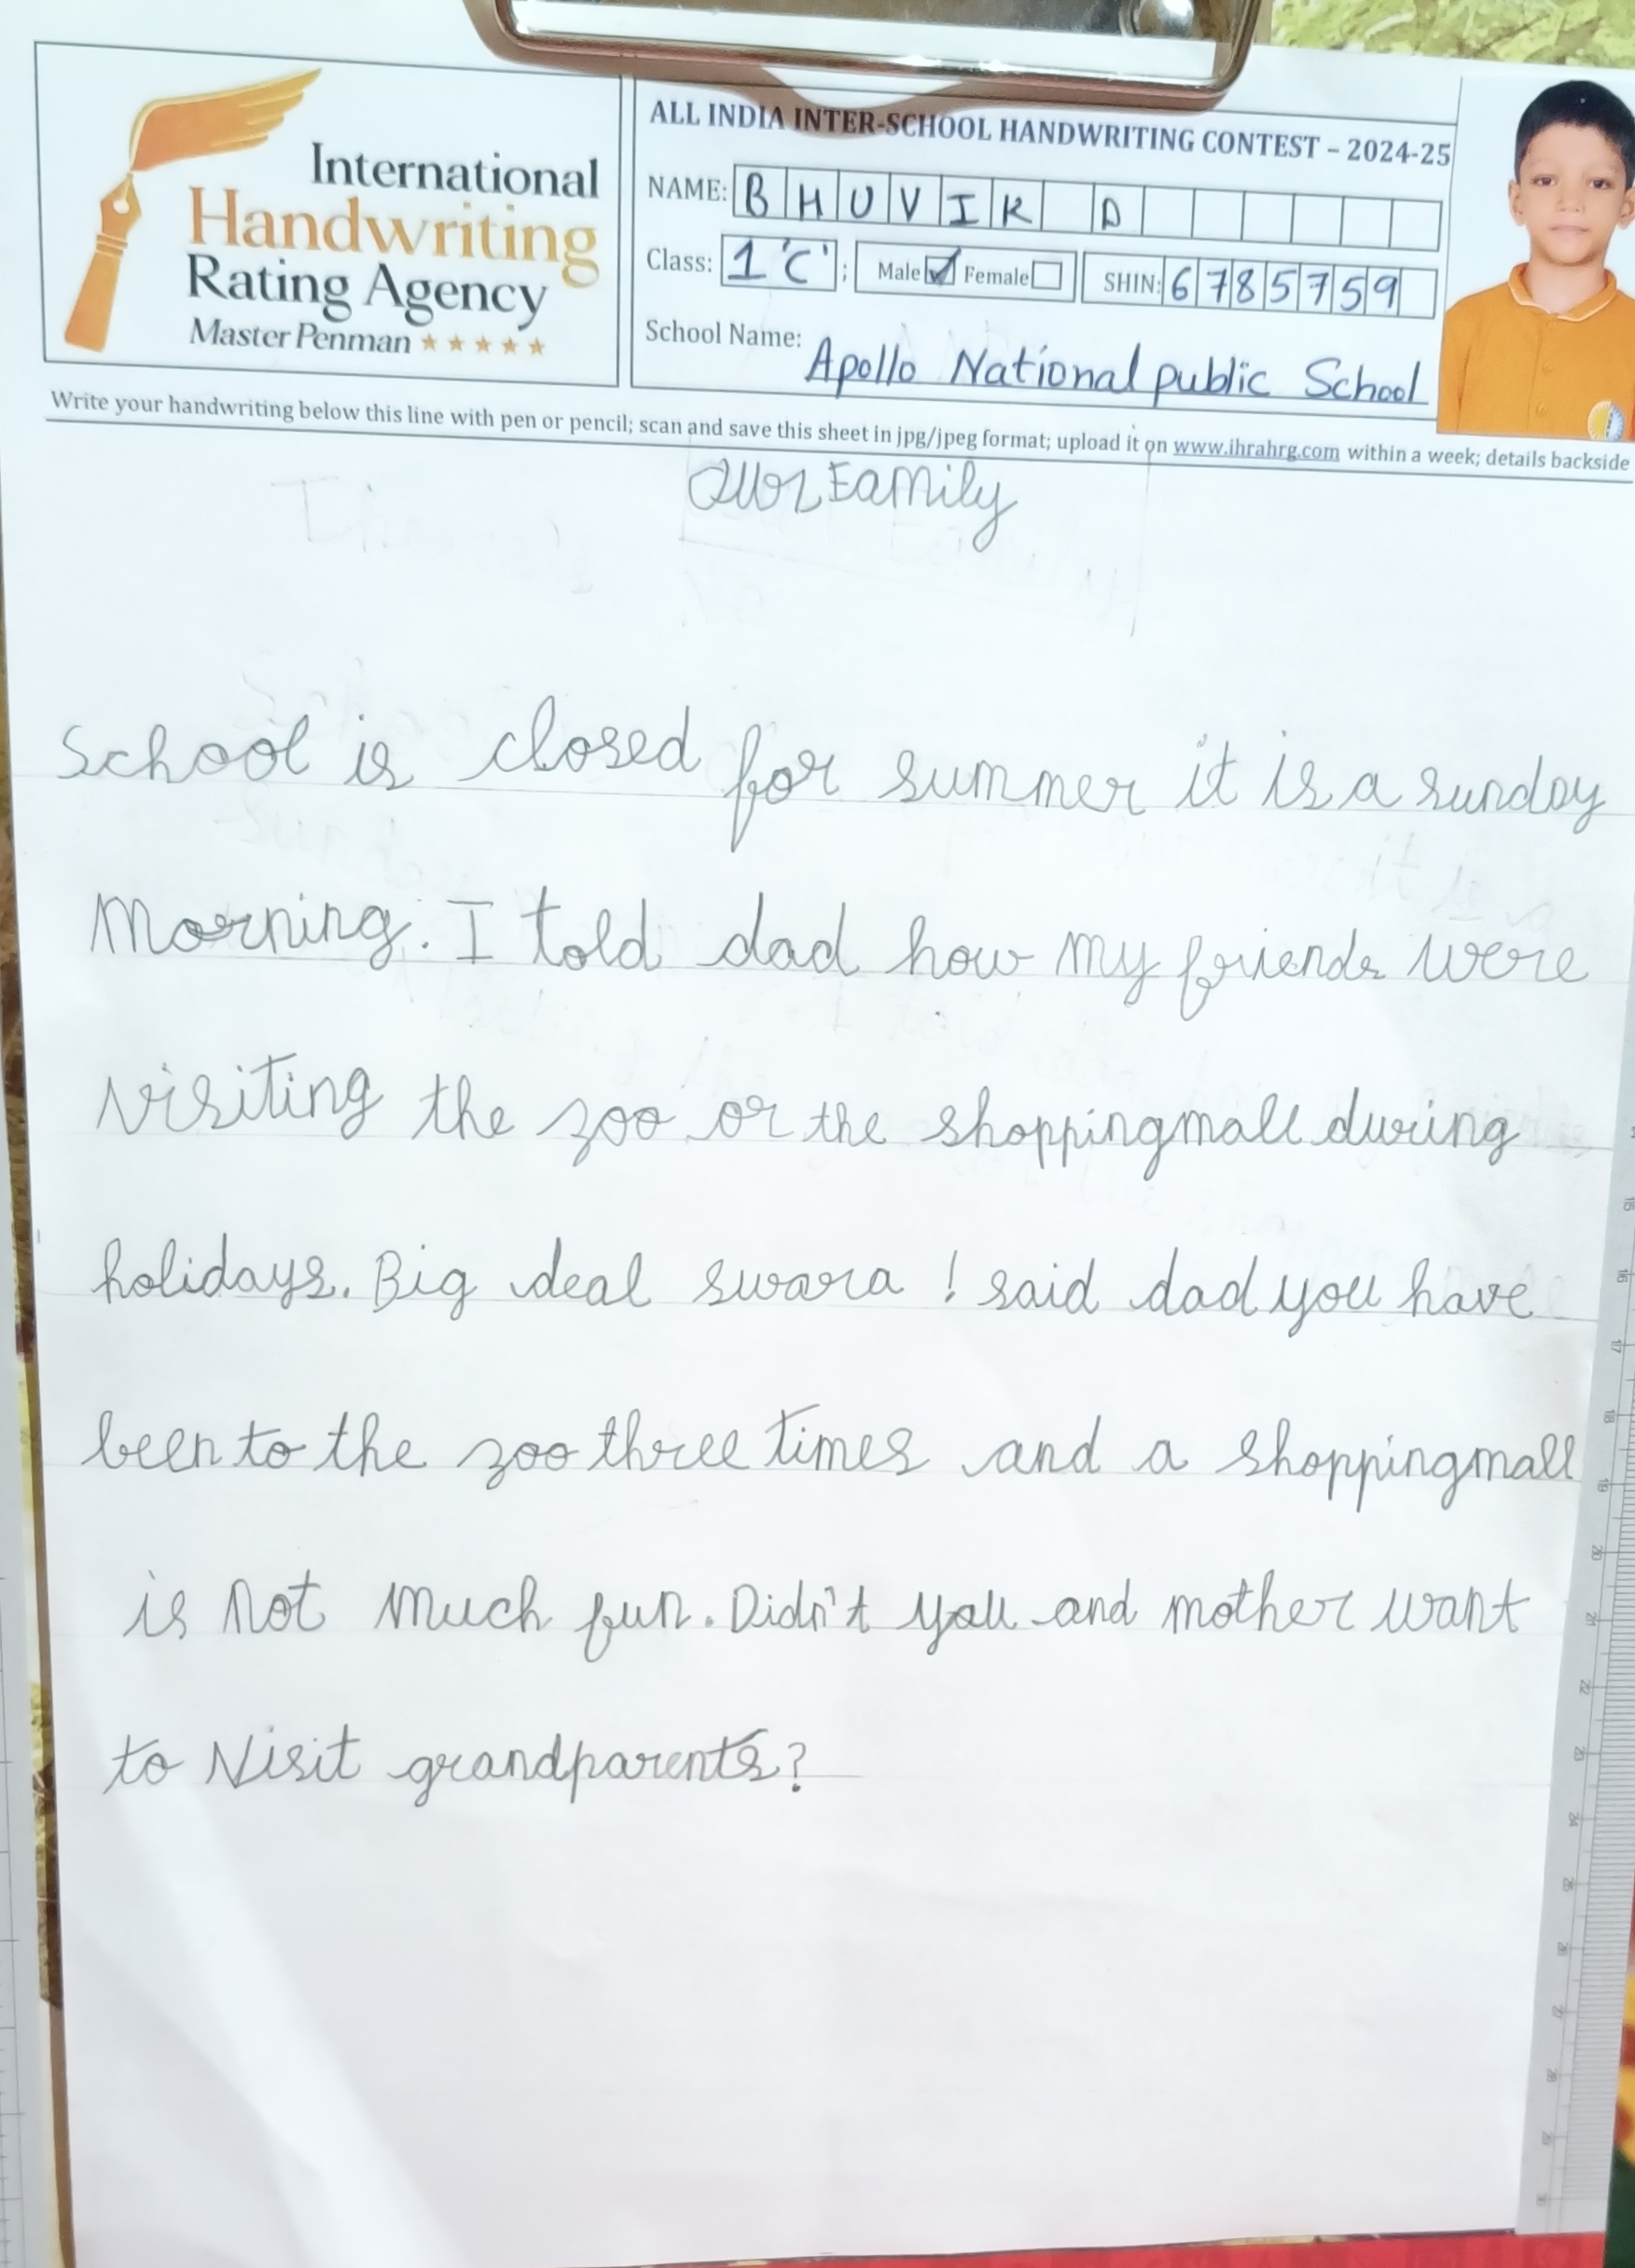 International
Handwriting
Rating Agency
Master Penman ★★★★★
ALL INDIA INTER-SCHOOL HANDWRITING CONTEST – 2024-25
NAME: BHUVIK D
Class: 1 'C' ; Male ☑ Female ☐ SHIN: 6785759
School Name: Apollo National public School
Write your handwriting below this line with pen or pencil; scan and save this sheet in jpg/jpeg format; upload it on www.ihrahrg.com within a week; details backside
Our Family
School is closed for summer it is a sunday
Morning. I told dad how my friends were
visiting the zoo or the shoppingmall during
holidays. Big deal swara ! said dad you have
been to the zoo three times and a shoppingmall
is not much fun. Didn't you and mother want
to visit grandparents?